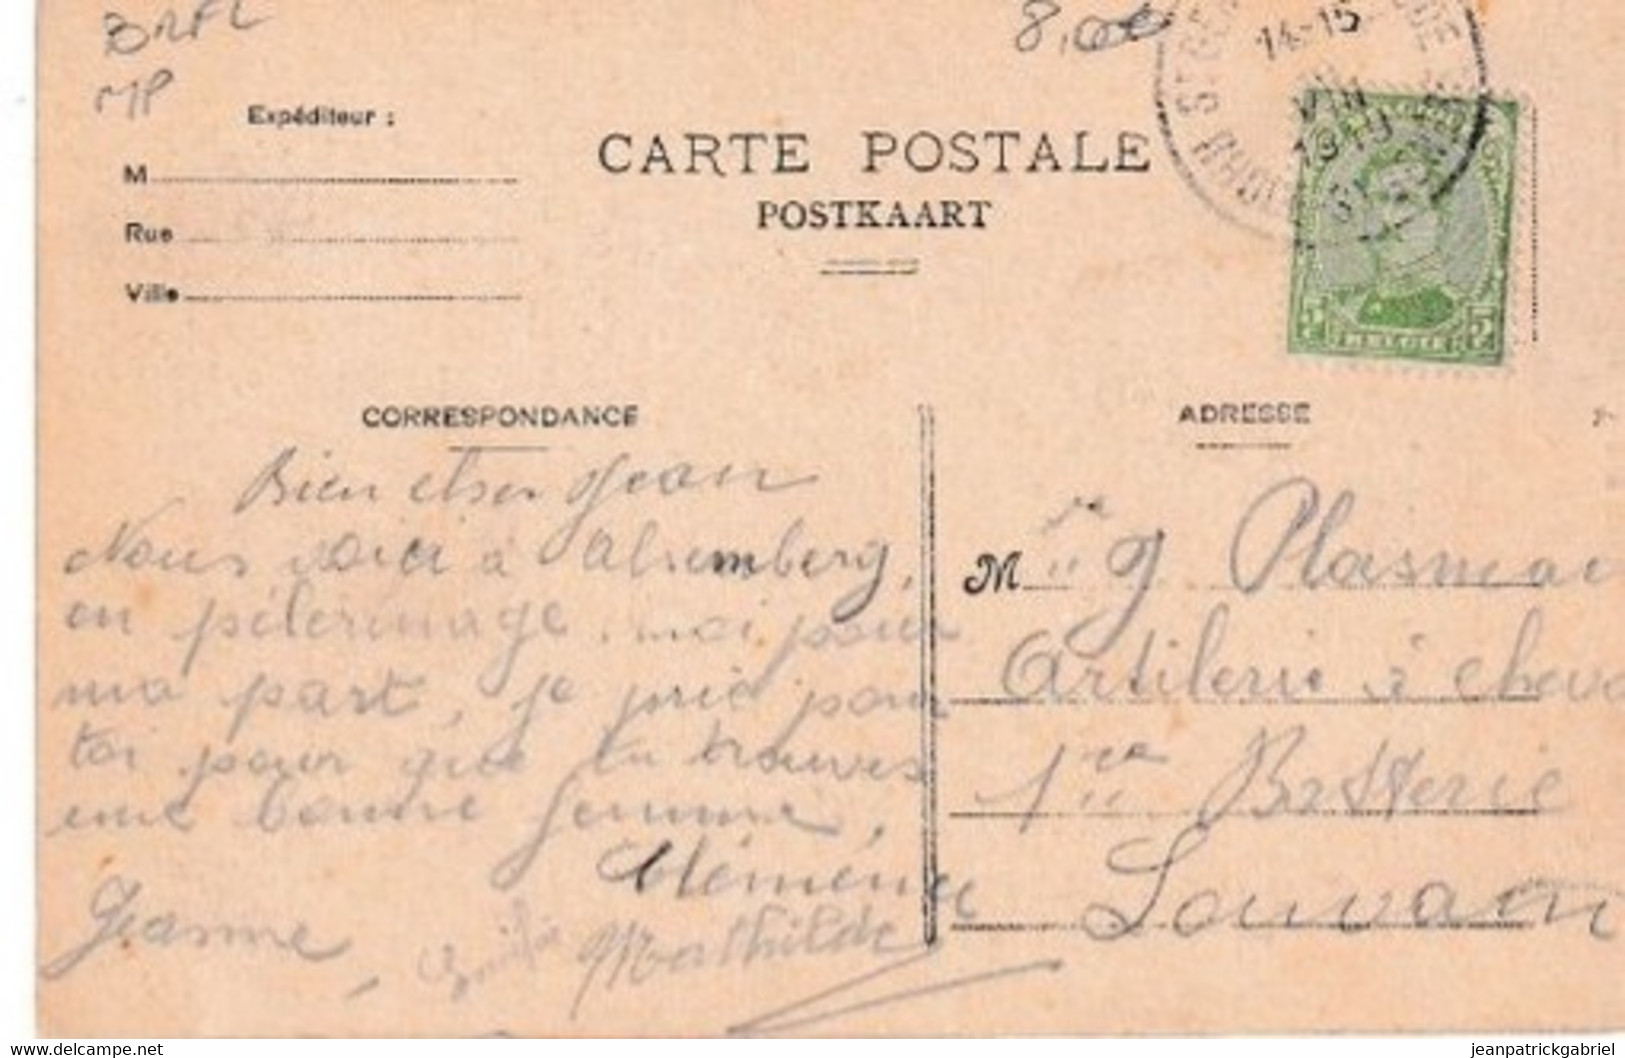 BRFL
MP
8,00
Expéditeur :
M
Rue
Ville
CARTE POSTALE
POSTKAART
14-15
VIII
ST
RHODE
5 BELGIE 5
CORRESPONDANCE
ADRESSE
Bien cher Jean
Nous voici à Alsemberg,
en pélerinage, moi pour
ma part, je prie pour
toi pour que tu trouves
une bonne femme,
Clémence
Jeanne, Mathilde
M G Plasman
Artilerie à cheva
1re Battterie
Louvain
delcampe.net
jeanpatrickgabriel